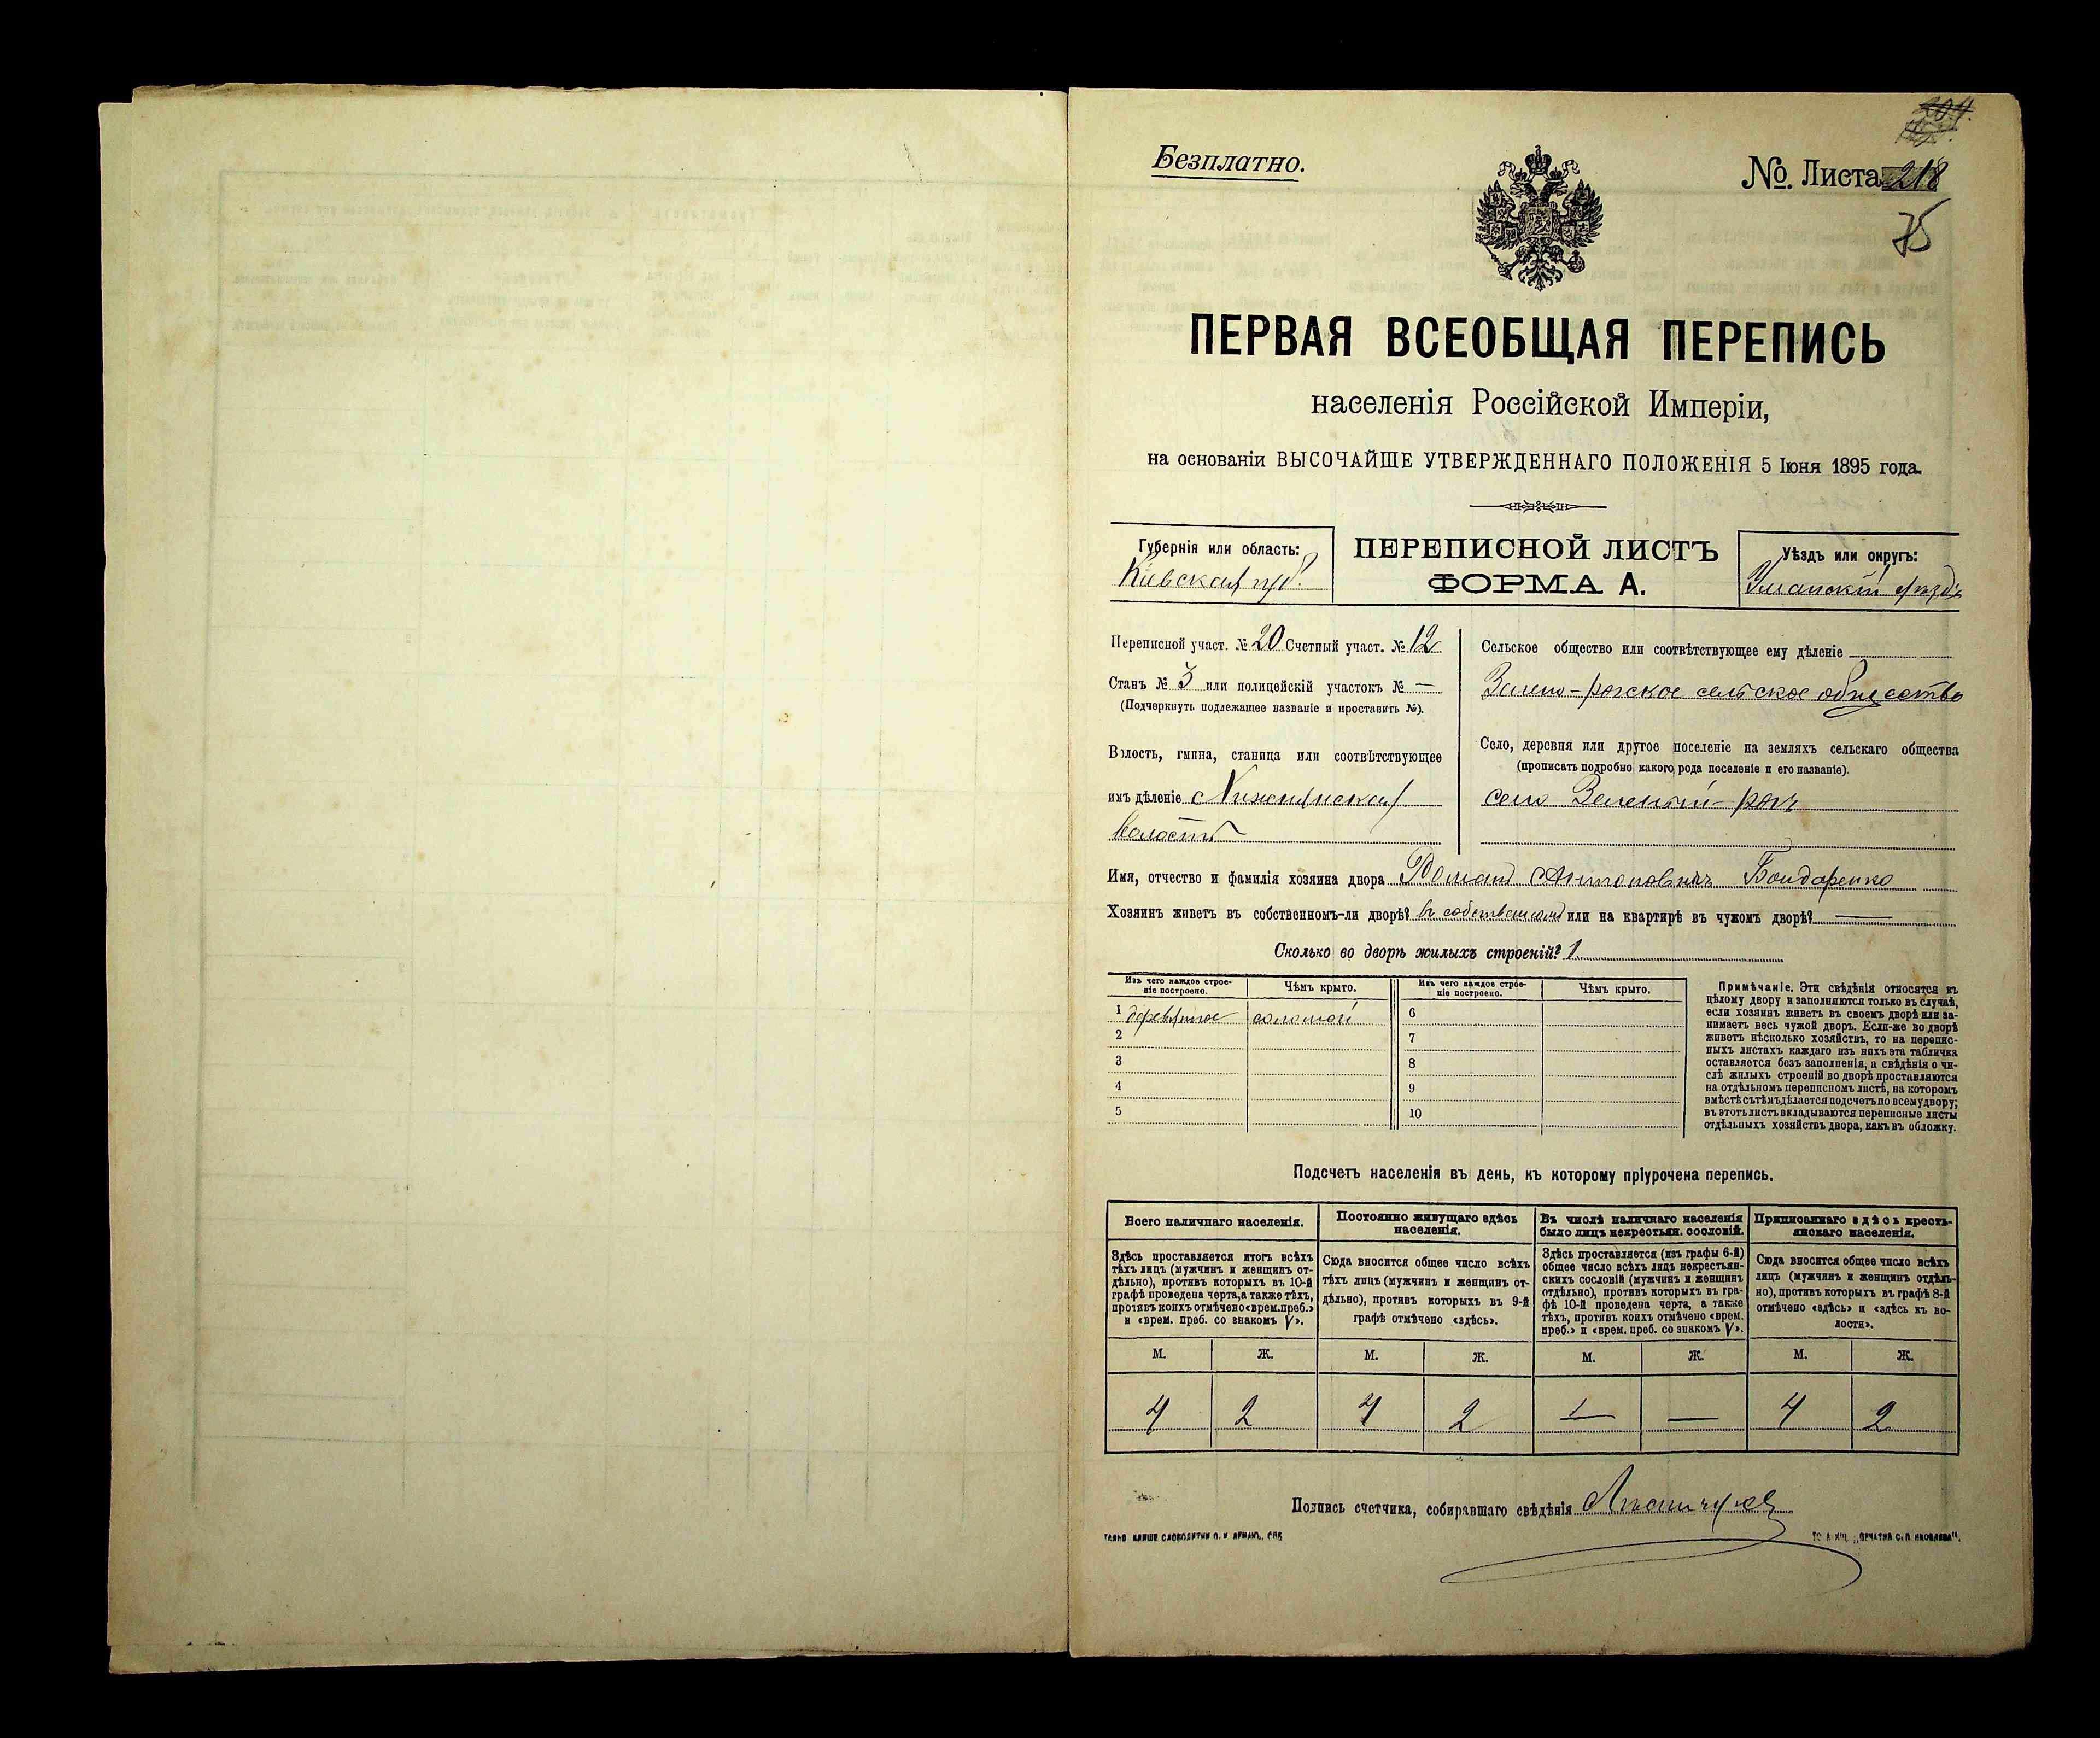 Безплатно.
№. Листа 218
75
ПЕРВАЯ ВСЕОБЩАЯ ПЕРЕПИСЬ
населенія Россійской Имперіи,
на основаніи ВЫСОЧАЙШЕ УТВЕРЖДЕННАГО ПОЛОЖЕНІЯ 5 Іюня 1895 года.
Губернія или область:
Кіевская губ.
ПЕРЕПИСНОЙ ЛИСТЪ
ФОРМА А.
Уѣздъ или округъ:
Уманскій уѣздъ
Переписной участ. № 20 Счетный участ. № 12
Станъ № 3 или полицейскій участокъ № —
(Подчеркнуть подлежащее названіе и проставить №).
Волость, гмина, станица или соотвѣтствующее
имъ дѣленіе
волость
Сельское общество или соотвѣтствующее ему дѣленіе
Зелено-рогское сельское общество
Село, деревня или другое поселеніе на земляхъ сельскаго общества
(прописать подробно какого рода поселеніе и его названіе).
село Зеленый-рогъ
Имя, отчество и фамилія хозяина двора Романъ Антоновичъ Бондаренко
Хозяинъ живетъ въ собственномъ-ли дворѣ? въ собственномъ или на квартирѣ въ чужомъ дворѣ? —
Сколько во дворѣ жилыхъ строеній? 1
Изъ чего каждое строе-
ніе построено.
Чѣмъ крыто.
Изъ чего каждое строе-
ніе построено.
Чѣмъ крыто.
1 деревянное соломой
2
3
4
5
6
7
8
9
10
Примѣчаніе. Эти свѣдѣнія относятся къ
цѣлому двору и заполняются только въ случаѣ,
если хозяинъ живетъ въ своемъ дворѣ или за-
нимаетъ весь чужой дворъ. Если-же во дворѣ
живетъ нѣсколько хозяйствъ, то на перепис-
ныхъ листахъ каждаго изъ нихъ эта табличка
оставляется безъ заполненія, а свѣдѣнія о чи-
слѣ жилыхъ строеній во дворѣ проставляются
на отдѣльномъ переписномъ листѣ, на которомъ
вмѣстѣ съ тѣмъ дѣлается подсчетъ по всему двору;
въ этотъ листъ вкладываются переписные листы
отдѣльныхъ хозяйствъ двора, какъ въ обложку.
Подсчетъ населенія въ день, къ которому пріурочена перепись.
Всего наличнаго населенія.
Здѣсь проставляется итогъ всѣхъ
тѣхъ лицъ (мужчинъ и женщинъ от-
дѣльно), противъ которыхъ въ 10-й
графѣ проведена черта, а также тѣхъ,
противъ коихъ отмѣчено «врем. преб.»
и «врем. преб. со знакомъ V».
Постоянно живущаго здѣсь
населенія.
Сюда вносится общее число всѣхъ
тѣхъ лицъ (мужчинъ и женщинъ от-
дѣльно), противъ которыхъ въ 9-й
графѣ отмѣчено «здѣсь».
Въ числѣ наличнаго населенія
было лицъ некрестьян. сословій.
Здѣсь проставляется (изъ графы 6-й)
общее число всѣхъ лицъ некрестьян-
скихъ сословій (мужчинъ и женщинъ
отдѣльно), противъ которыхъ въ гра-
фѣ 10-й проведена черта, а также
тѣхъ, противъ коихъ отмѣчено «врем.
преб.» и «врем. преб. со знакомъ V».
Приписаннаго здѣсь кресть-
янскаго населенія.
Сюда вносится общее число всѣхъ
лицъ (мужчинъ и женщинъ отдѣль-
но), противъ которыхъ въ графѣ 8-й
отмѣчено «здѣсь» и «здѣсь къ во-
лости».
М. Ж. М. Ж. М. Ж. М. Ж.
4 2 4 2 — 4 2
Подпись счетчика, собиравшаго свѣдѣнія